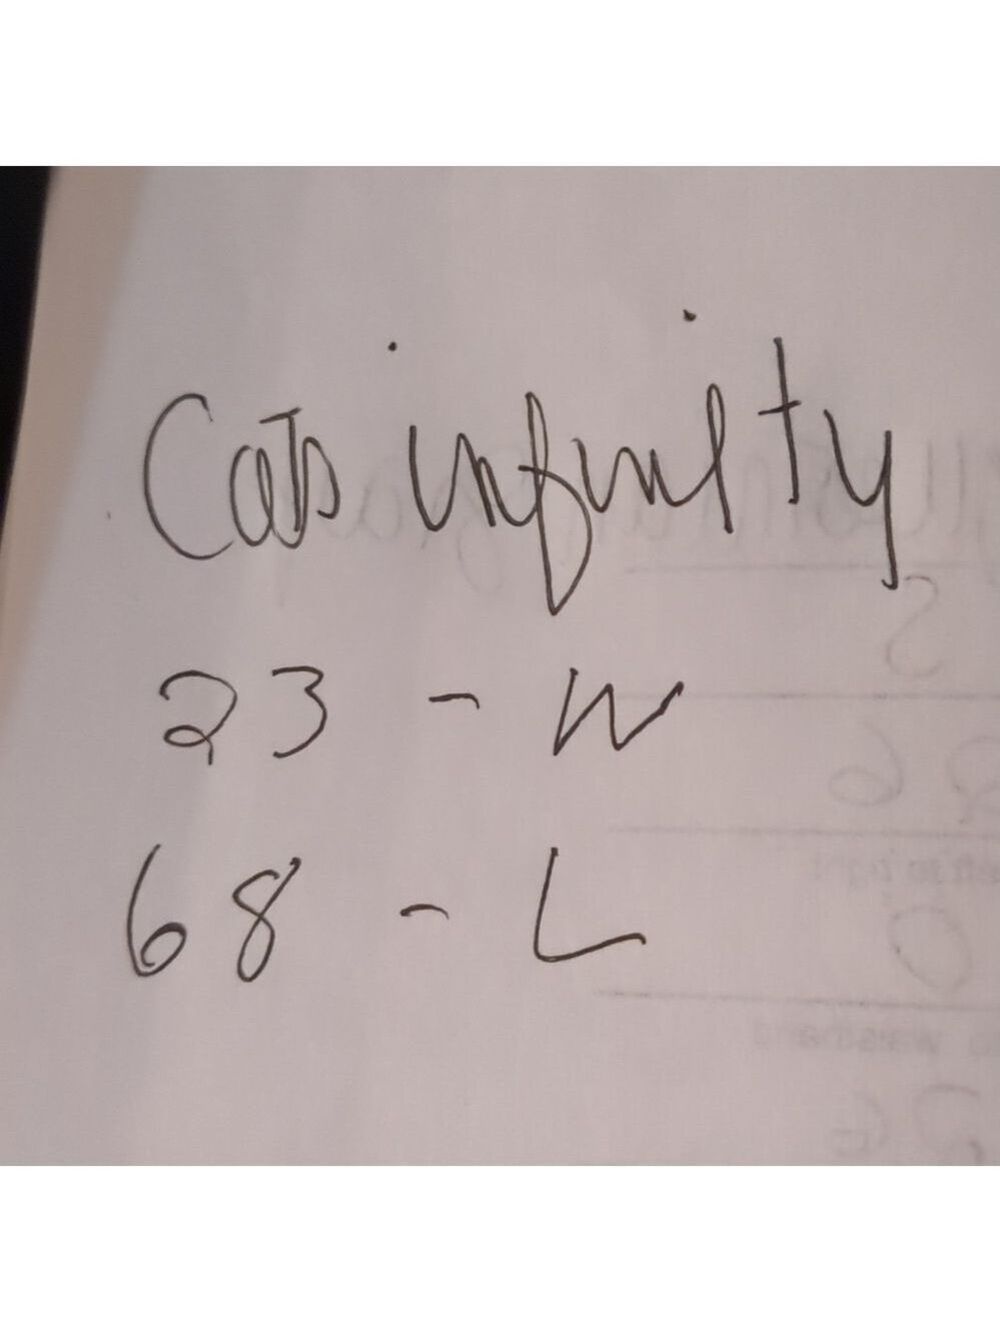 Cats infinity
23 - W
68 - L